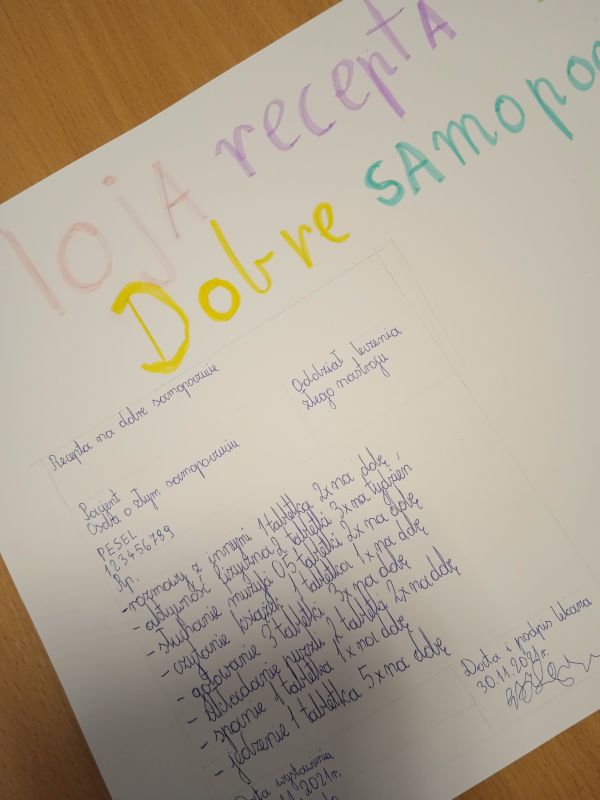 lOjA receptA
Dobre sAmopo
Recepta na dobre samopoczucie
Oddział leczenia
złego nastroju
Pacjent
Osoba o złym samopoczuciu
PESEL
123456799
Rp.
- rozmowy z innymi 1 tabletka 2x na dobę
- aktywność fizyczna 2 tabletki 3x na tydzień
- słuchanie muzyki 0,5 tabletki 2x na dobę
- czytanie książek 1 tabletka 1x na dobę
- gotowanie 3 tabletki 3x na dobę
- układanie puzzli 2 tabletki 2x na dobę
- spanie 1 tabletka 1x na dobę
- jedzenie 1 tabletka 5x na dobę
Data i podpis lekarza
30.11.2021r.
Data wystawienia
.11.2021r.